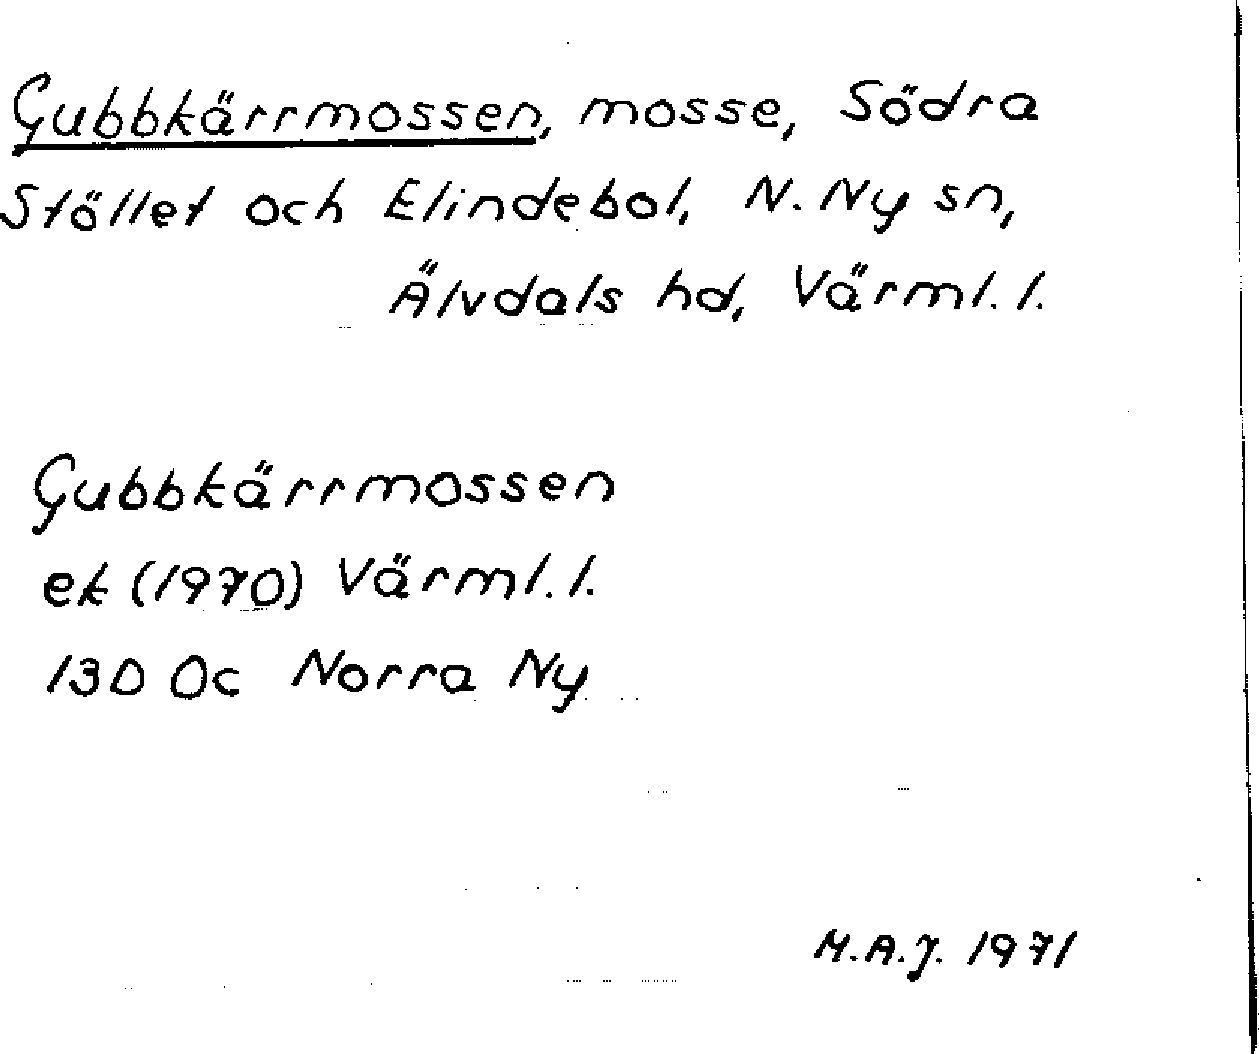 Gubbkärrmossen, mosse, Södra
Stöllet och Elindebol, N. Ny sn,
Älvdals hd, Värml. l.
Gubbkärrmossen
ek (1970) Värml. l.
13D 0c Norra Ny
M.A.J. 1971